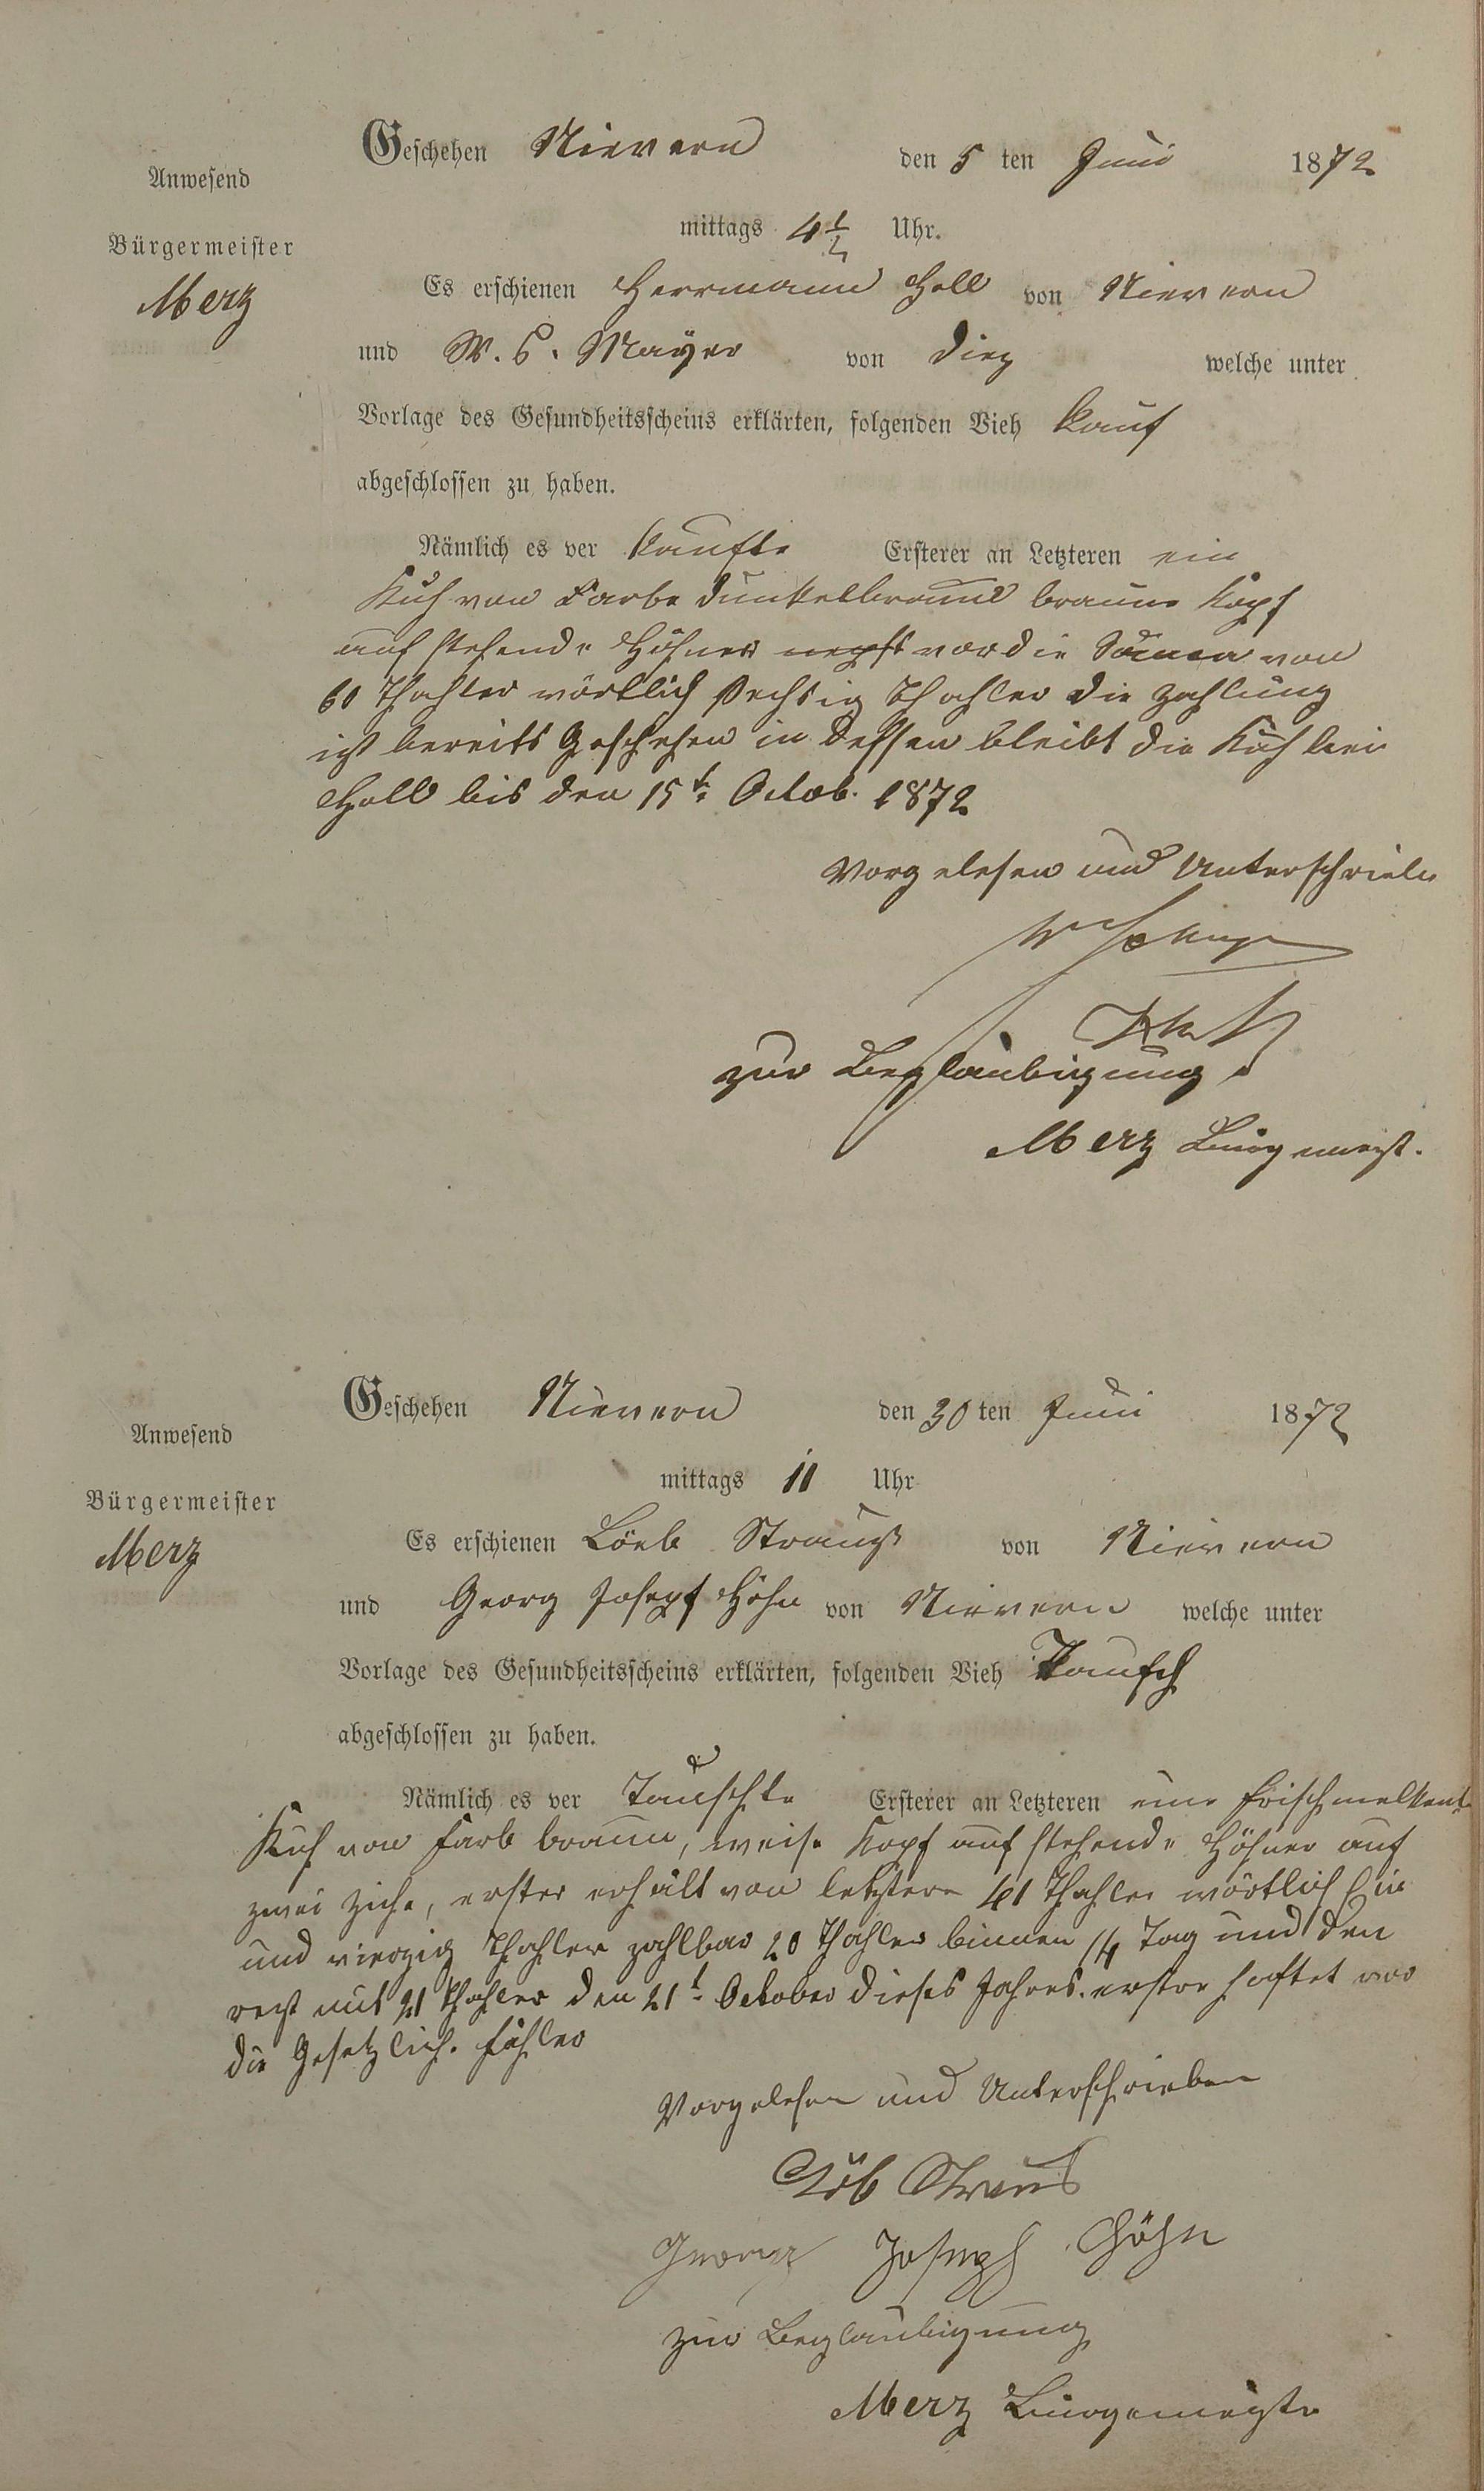 Geschehen Nievern den 5 ten Juni 1872
Anwesend
mittags 4 1/2 Uhr.
Bürgermeister
Merz
Es erschienen Herrmann Holl von Nievern
und W. S. Mayer von Diez welche unter
Vorlage des Gesundheitsscheins erklärten, folgenden Vieh kauf
abgeschlossen zu haben.
Nämlich es ver kaufte Ersterer an Letzteren ein
Kuh von Farbe dunkelbraun braune Kopf
auf stehende Höhner vor die Summa von
60 Thahler wörtlich Sechsig Thahler die Zahlung
ist bereits Geschehen in dessen bleibt die Kuh bei
Holl bis den 15t Octob. 1872
Vorgelesen und Unterschrieben
zur Beglaubigung
Merz Bürgemeist.
Geschehen Nievern den 30 ten Juni 1872
Anwesend
mittags 11 Uhr
Bürgermeister
Merz
Es erschienen Löeb Strauß von Nievern
und Georg Josepf Höhn von Nievern welche unter
Vorlage des Gesundheitsscheins erklärten, folgenden Vieh Tausch
abgeschlossen zu haben.
Nämlich es ver Tauschte Ersterer an Letzteren eine frisch melkente
Kuh von Farb braun, weise Kopf auf stehende Höhner auf
zwei Ziehe, erster erhält von letztere 41 Thahler wörtlich Ein
und vierzig Thahler zahlbar 20 Thahler binnen 14 Tag und den
rest mit 21 Thahler den 21t October dieses Jahres. erstere haftet vor
die Gesetzlich. Fähler
Vorgelesen und Unterschrieben
Löb Straus
Georg Joseph Höhn
zur Beglaubigung
Merz Bürgemeister